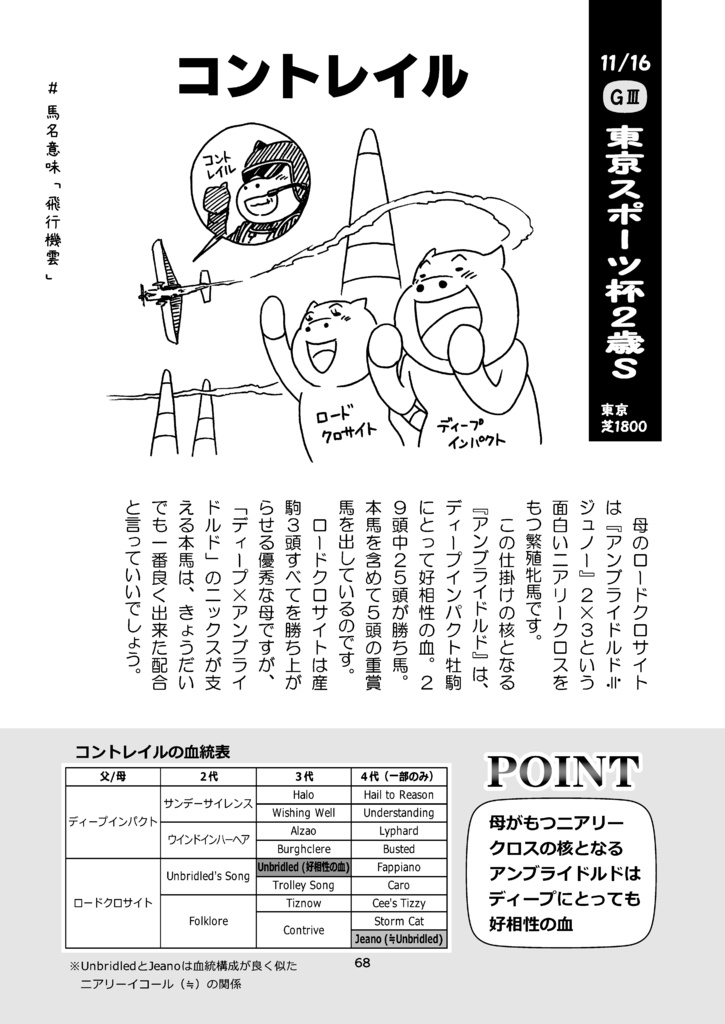 11/16
GⅢ
東京スポーツ杯2歳S
東京
芝1800
コントレイル
# 馬名意味「飛行機雲」
コント
レイル
ロード
クロサイト
ディープ
インパクト
母のロードクロサイト
は『アンブライドルド≒
ジュノー』2×3という
面白いニアリークロスを
もつ繁殖牝馬です。
この仕掛けの核となる
『アンブライドルド』は、
ディープインパクト牡駒
にとって好相性の血。2
9頭中25頭が勝ち馬。
本馬を含めて5頭の重賞
馬を出しているのです。
ロードクロサイトは産
駒3頭すべてを勝ち上が
らせる優秀な母ですが、
「ディープ×アンブライ
ドルド」のニックスが支
える本馬は、きょうだい
でも一番良く出来た配合
と言っていいでしょう。
コントレイルの血統表
父/母 2代 3代 4代（一部のみ）
ディープインパクト サンデーサイレンス Halo Hail to Reason
Wishing Well Understanding
ウインドインハーヘア Alzao Lyphard
Burghclere Busted
ロードクロサイト Unbridled's Song Unbridled (好相性の血) Fappiano
Trolley Song Caro
Folklore Tiznow Cee's Tizzy
Contrive Storm Cat
Jeano (≒Unbridled)
※UnbridledとJeanoは血統構成が良く似た
ニアリーイコール（≒）の関係
POINT
母がもつニアリー
クロスの核となる
アンブライドルドは
ディープにとっても
好相性の血
68